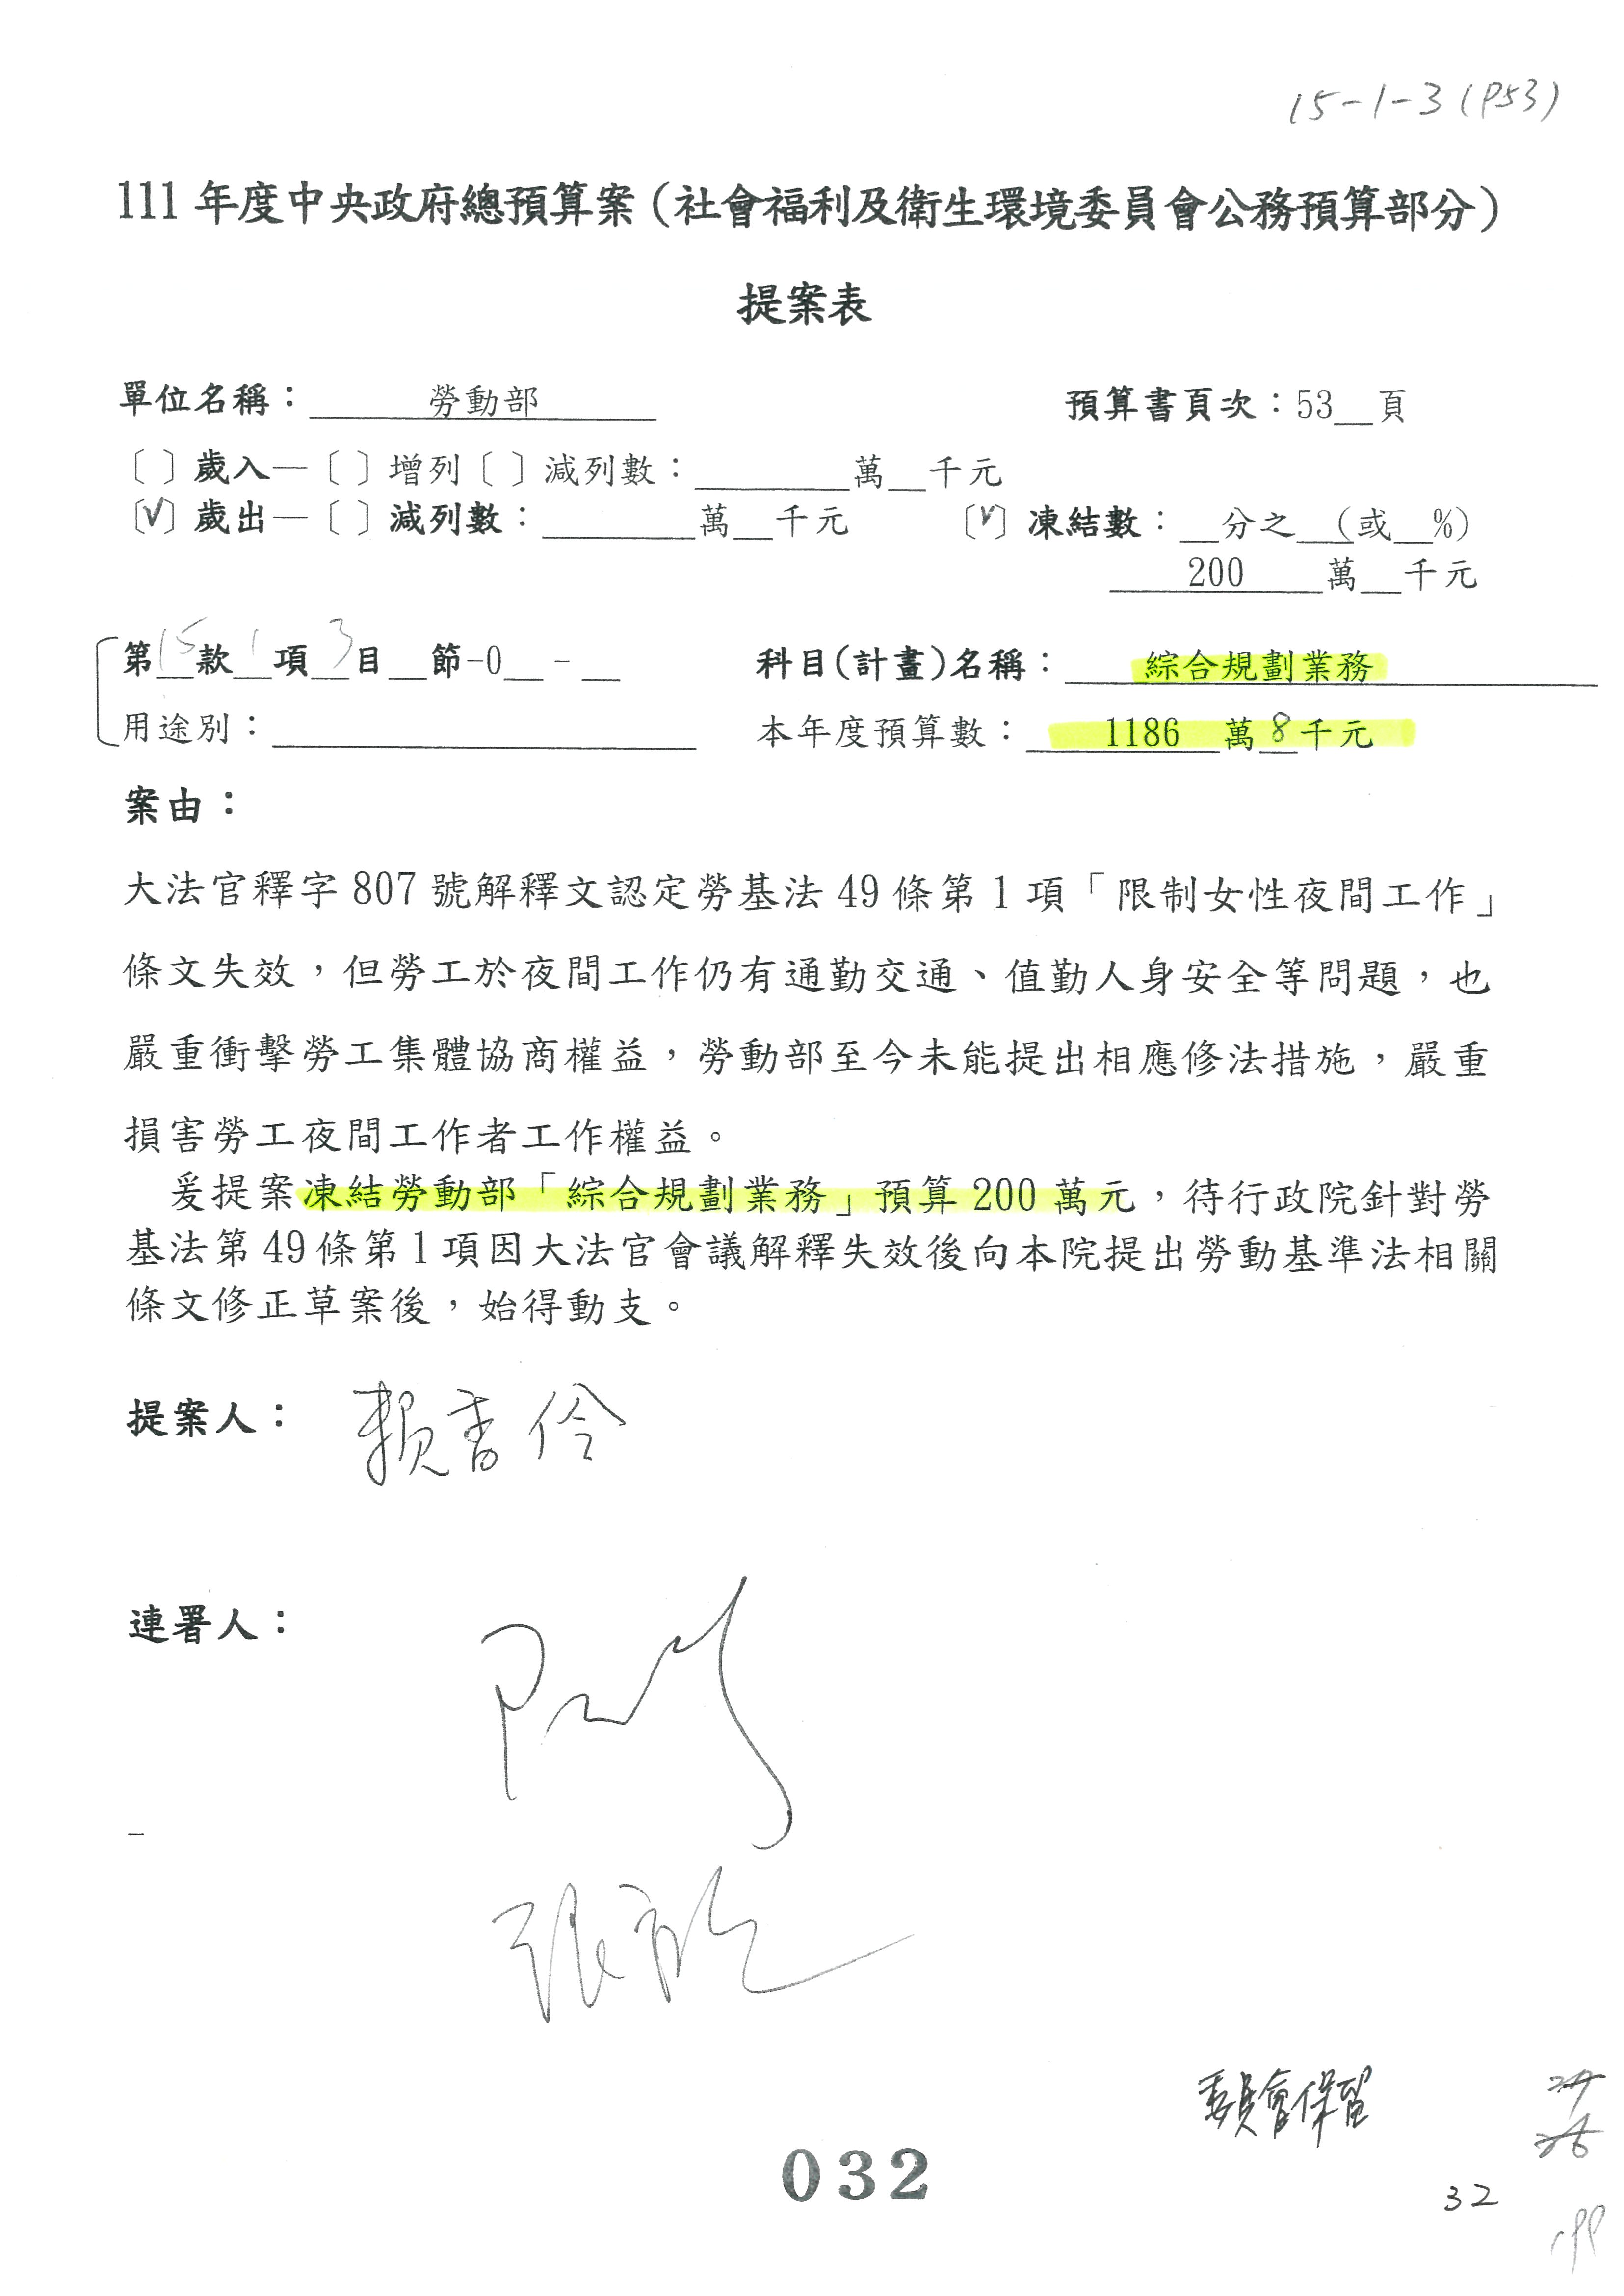 15-1-3(P53)
111 年度中央政府總預算案(社會福利及衛生環境委員會公務預算部分)
提案表
單位名稱：勞動部 預算書頁次：53__頁
〔 〕歲入—〔 〕增列〔 〕減列數：________萬__千元
〔V〕歲出—〔 〕減列數：________萬__千元 〔V〕凍結數：__分之___(或__%)
200 萬__千元
第15款1項3目__節-0__-__ 科目(計畫)名稱：綜合規劃業務
用途別：________ 本年度預算數：1186 萬8千元
案由：
大法官釋字 807 號解釋文認定勞基法 49 條第 1 項「限制女性夜間工作」
條文失效，但勞工於夜間工作仍有通勤交通、值勤人身安全等問題，也
嚴重衝擊勞工集體協商權益，勞動部至今未能提出相應修法措施，嚴重
損害勞工夜間工作者工作權益。
爰提案凍結勞動部「綜合規劃業務」預算 200 萬元，待行政院針對勞
基法第 49 條第 1 項因大法官會議解釋失效後向本院提出勞動基準法相關
條文修正草案後，始得動支。
提案人：賴香伶
連署人：
委員會保留
032
32